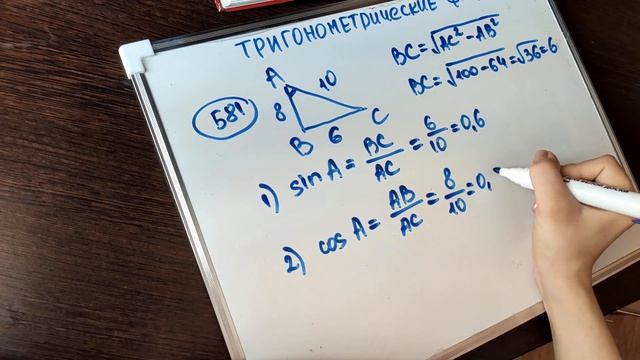 ТРИГОНОМЕТРИЧЕСКИЕ
BC=√AC²-AB²
BC=√100-64=√36=6
581
A
10
8
B
6
C
1) sin A = BC/AC = 6/10 = 0,6
2) cos A = AB/AC = 8/10 = 0,